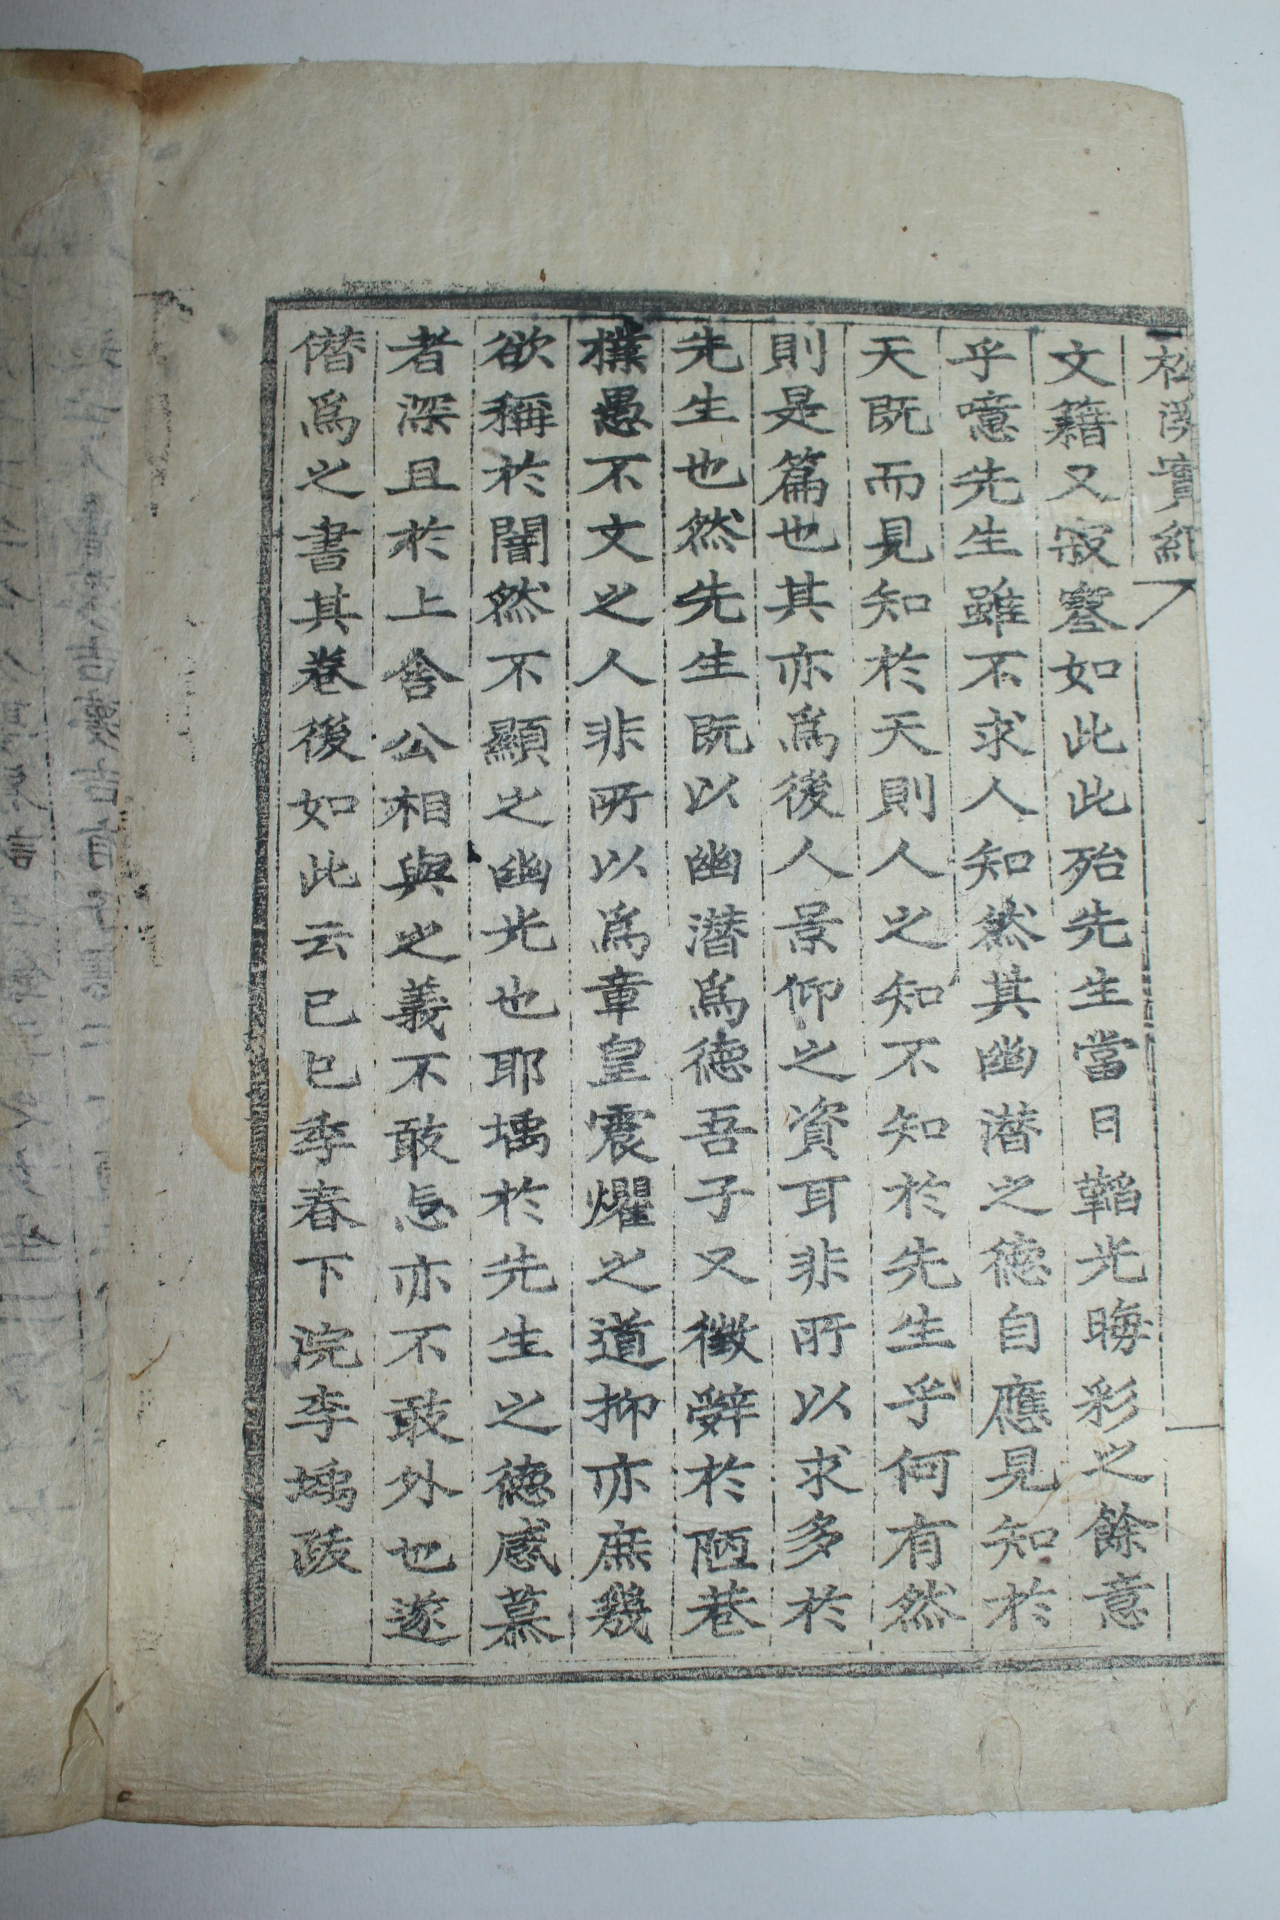 松溪實紀
文籍又寂寥如此此殆先生當日韜光晦彩之餘意
乎噫先生雖不求人知然其幽潛之德自應見知於
天既而見知於天則人之知不知於先生乎何有然
則是篇也其亦爲後人景仰之資耳非所以求多於
先生也然先生既以幽潛爲德吾子又徵辭於陋巷
樸愚不文之人非所以爲章皇震燿之道抑亦庶幾
欲稱於闇然不顯之幽光也耶㙖於先生之德感慕
者深且於上舍公相與之義不敢忘亦不敢外也遂
僭爲之書其卷後如此云己巳季春下浣李㙖䟦